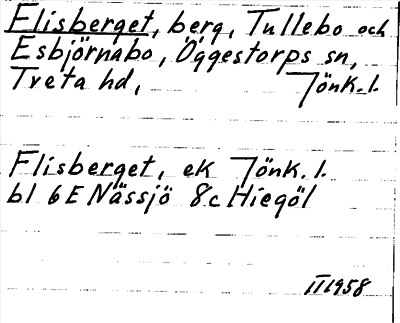 Flisberget, berg, Tullebo och
Esbjörnabo, Öggestorps sn,
Tveta hd, Jönk. l.
Flisberget, ek Jönk. l.
bl 6 E Nässjö 8 c Hiegöl
III 1958